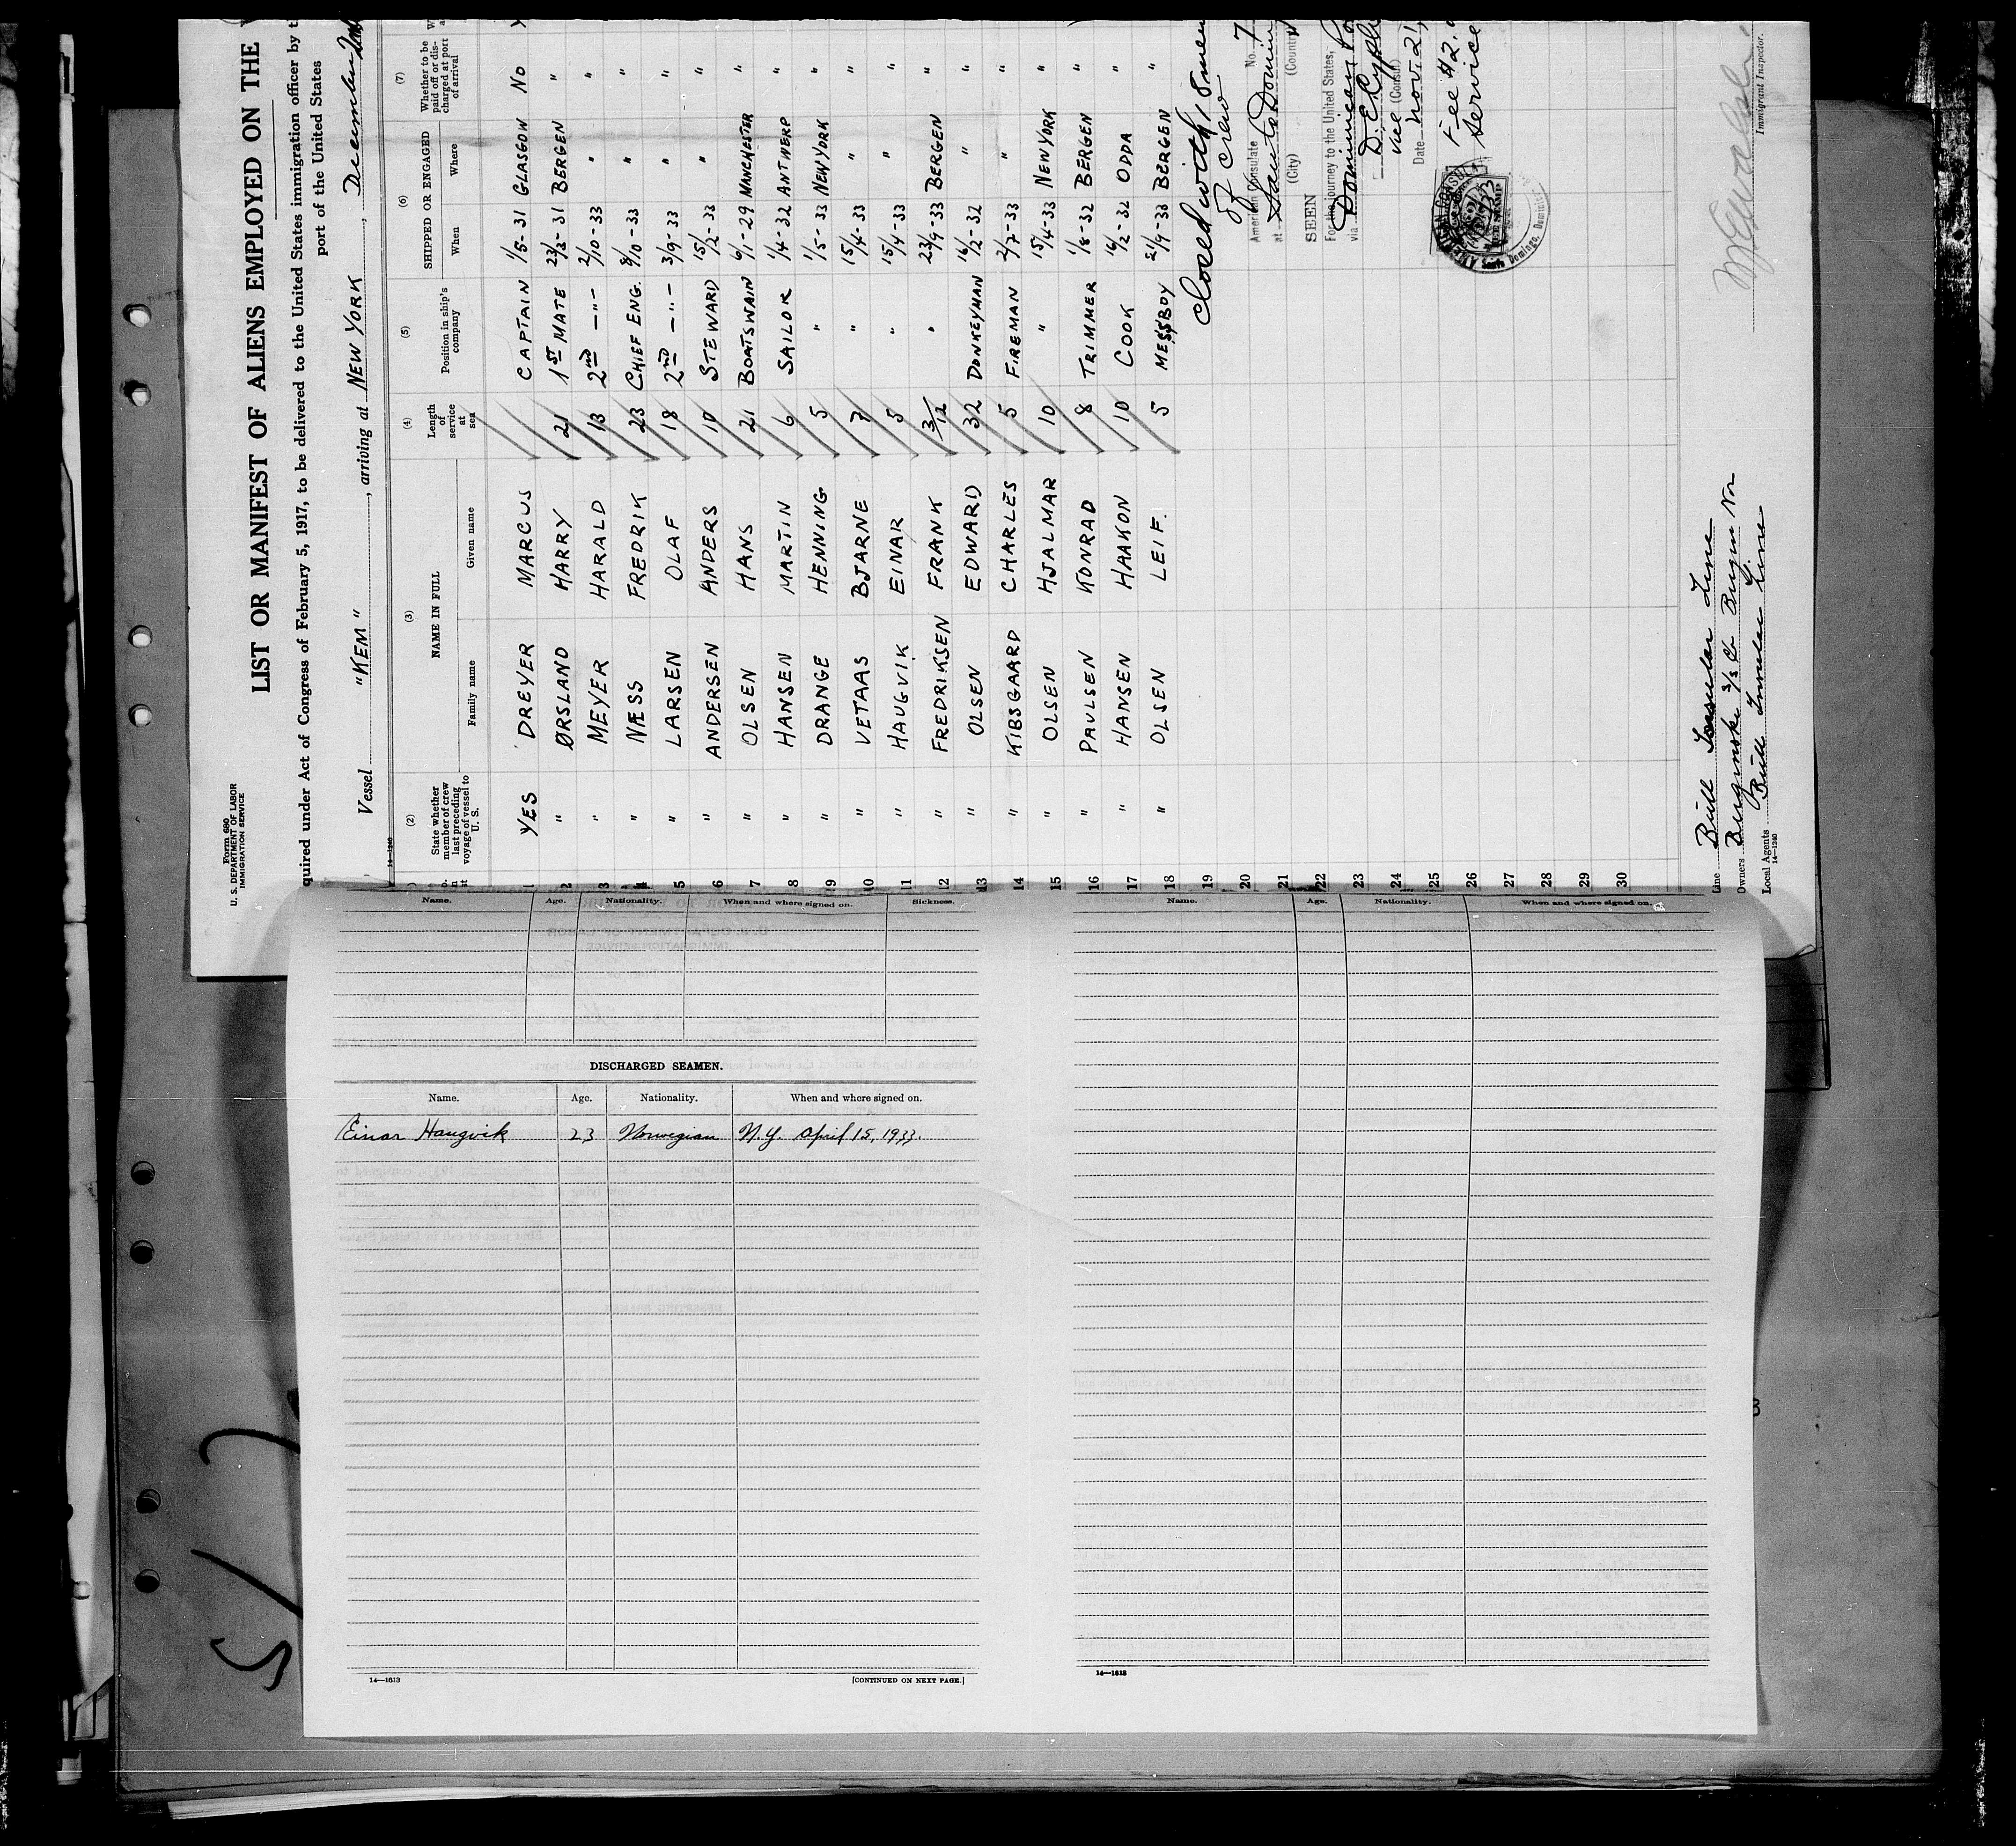 Form 690
U. S. DEPARTMENT OF LABOR
IMMIGRATION SERVICE
LIST OR MANIFEST OF ALIENS EMPLOYED ON THE
quired under Act of Congress of February 5, 1917, to be delivered to the United States immigration officer by
port of the United States
Vessel "KEM", arriving at NEW YORK, December
14-1240
(2) (3) (4) (5) (6) (7)
State whether member of crew last preceding voyage of vessel to U. S. NAME IN FULL Length of service at sea Position in ship's company SHIPPED OR ENGAGED Whether to be paid off or discharged at port of arrival
Family name Given name When Where
1 YES DREYER MARCUS CAPTAIN 1/5-31 GLASGOW No
2 " ØRSLAND HARRY 21 1ST MATE 23/2-31 BERGEN "
3 " MEYER HARALD 13 2nd -"- 2/10-33 " "
4 " NÆSS FREDRIK 23 CHIEF ENG. 8/10-33 " "
5 " LARSEN OLAF 18 2nd -"- 3/9-33 " "
6 " ANDERSEN ANDERS 10 STEWARD 15/2-33 " "
7 " OLSEN HANS 21 BOATSWAIN 6/1-29 MANCHESTER "
8 " HANSEN MARTIN 6 SAILOR 1/4-32 ANTWERP "
9 " DRANGE HENNING 5 " 1/5-33 NEW YORK "
10 " VETAAS BJARNE 7 " 15/4-33 " "
11 " HAUGVIK EINAR 5 " 15/4-33 " "
12 " FREDRIKSEN FRANK 3/12 " 23/9-33 BERGEN "
13 " OLSEN EDWARD 32 DONKEYMAN 16/2-32 " "
14 " KIBSGAARD CHARLES 5 FIREMAN 2/7-33 " "
15 " OLSEN HJALMAR 10 " 15/4-33 NEW YORK "
16 " PAULSEN KONRAD 8 TRIMMER 1/8-32 BERGEN "
17 " HANSEN HAAKON 10 COOK 16/2-32 ODDA "
18 " OLSEN LEIF. 5 MESSBOY 21/9-33 BERGEN "
19
20
21
22
23
24
25
26
27
28
29
30
Closed with 18 men
of crew
American Consulate No. 7
at Santo Domin
(City) (Country
SEEN
For the journey to the United States,
via Dominican Po
D. E.
Vice (Consul)
Date Nov. 21,
Fee #2.
Service
Santo Domingo, Dominic
Line Bull Insular Line
Owners Bergenske Bergen Nor
Local Agents Bull Insular Line
14-1240
Immigrant Inspector.
Name. Age. Nationality. When and where signed on. Sickness.
DISCHARGED SEAMEN.
Name. Age. Nationality. When and where signed on.
Einar Haugvik 23 Norwegian N.Y. April 15, 1933.
14-1613 [CONTINUED ON NEXT PAGE.]
Name. Age. Nationality. When and where signed on.
14-1613